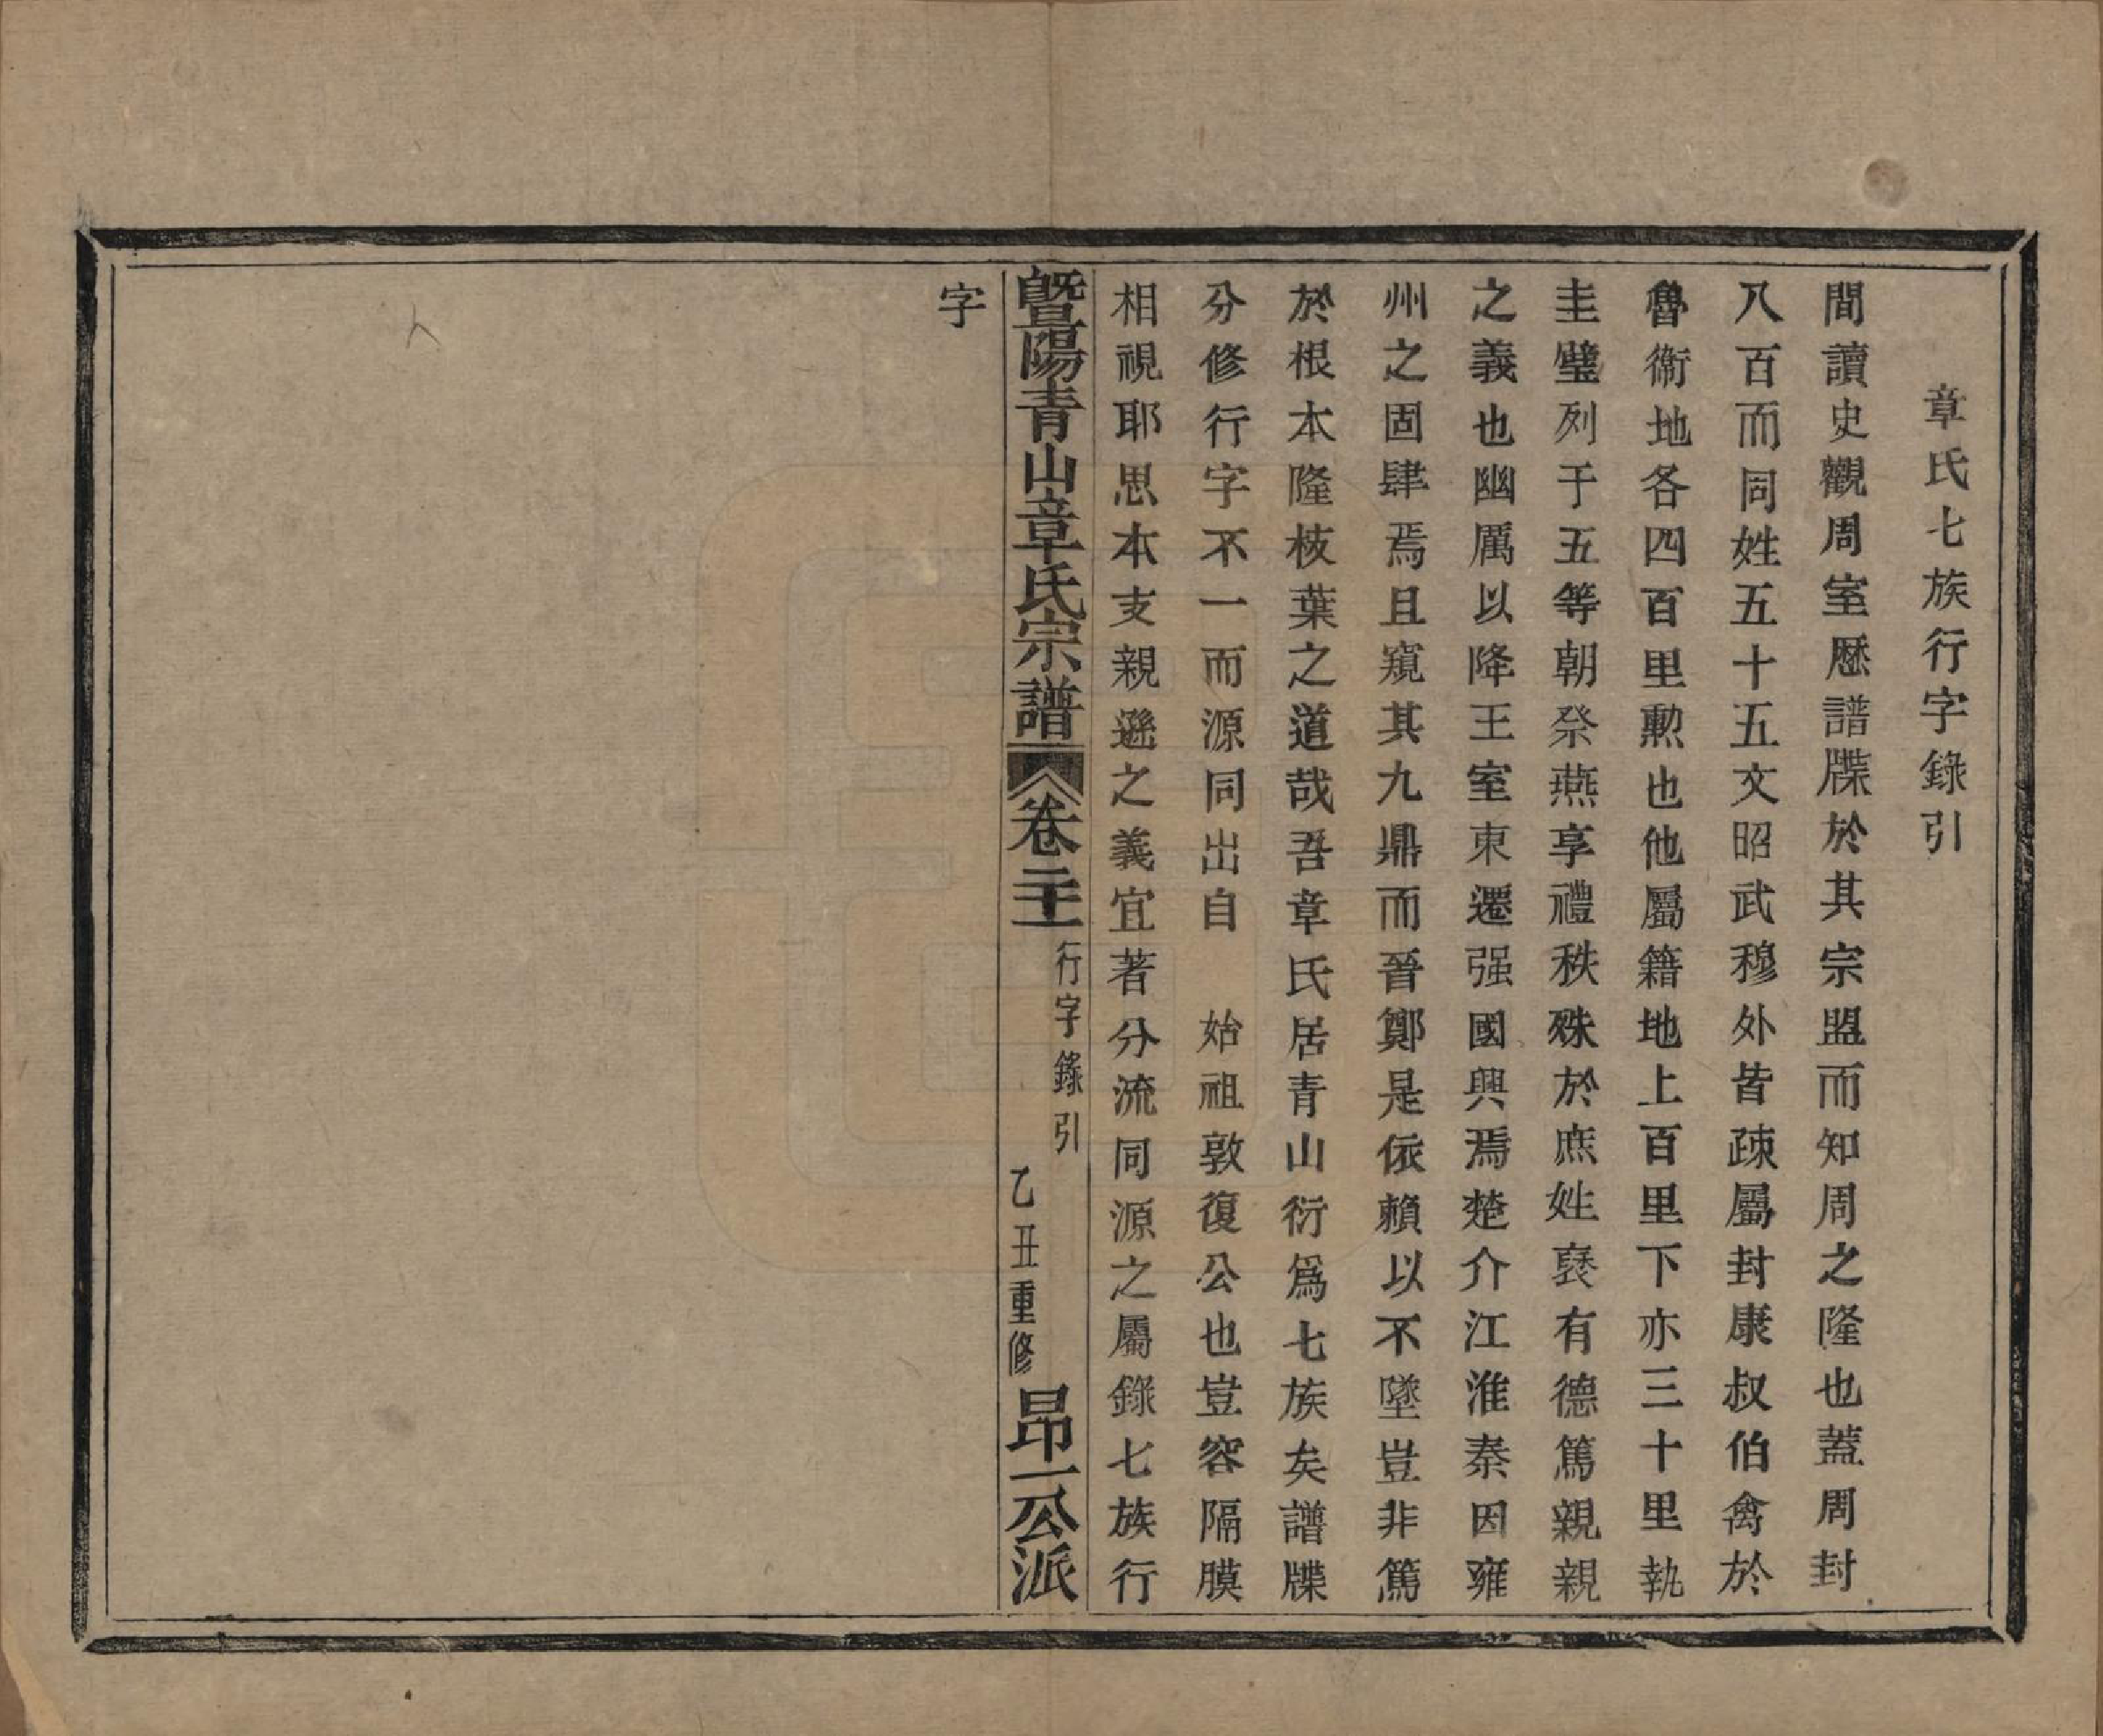 章氏七族行字錄引
間讀史觀周室歷譜牒於其宗盟而知周之隆也蓋周封
八百而同姓五十五文昭武穆外皆疎屬封康叔伯禽於
魯衞地各四百里勲也他屬籍地上百里下亦三十里執
圭璧列于五等朝祭燕享禮秩殊於庶姓襃有德篤親親
之義也幽厲以降王室東遷强國興焉楚介江淮秦因雍
州之固肆焉且窺其九鼎而晉鄭是依賴以不墜豈非篤
於根本隆枝葉之道哉吾章氏居青山衍爲七族矣譜牒
分修行字不一而源同出自 始祖敦復公也豈容隔膜
相視耶思本支親遜之義宜著分流同源之屬錄七族行
暨陽青山章氏宗譜 卷二十一 行字錄引 乙丑重修 昂一公派
字